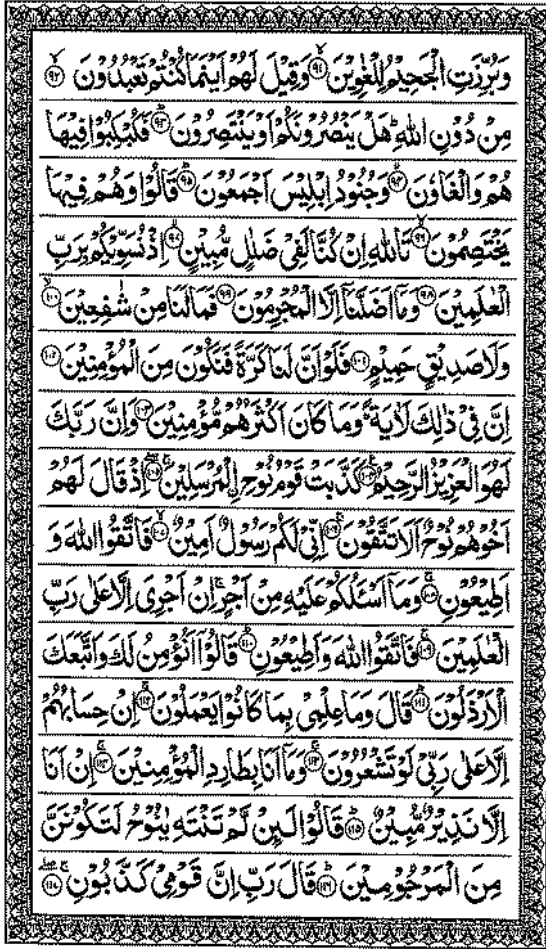 وَبُرِّزَتِ الْجَحِيْمُ لِلْغٰوِيْنَ ﴿٩١﴾ وَقِيْلَ لَهُمْ اَيْنَمَا كُنْتُمْ تَعْبُدُوْنَ ﴿٩٢﴾
مِنْ دُوْنِ اللّٰهِ هَلْ يَنْصُرُوْنَكُمْ اَوْ يَنْتَصِرُوْنَ ﴿٩٣﴾ فَكُبْكِبُوْا فِيْهَا
هُمْ وَالْغَاوٗنَ ﴿٩٤﴾ وَجُنُوْدُ اِبْلِيْسَ اَجْمَعُوْنَ ﴿٩٥﴾ قَالُوْا وَهُمْ فِيْهَا
يَخْتَصِمُوْنَ ﴿٩٦﴾ تَاللّٰهِ اِنْ كُنَّا لَفِيْ ضَلٰلٍ مُّبِيْنٍ ﴿٩٧﴾ اِذْ نُسَوِّيْكُمْ بِرَبِّ
الْعٰلَمِيْنَ ﴿٩٨﴾ وَمَاۤ اَضَلَّنَاۤ اِلَّا الْمُجْرِمُوْنَ ﴿٩٩﴾ فَمَا لَنَا مِنْ شٰفِعِيْنَ ﴿١٠٠﴾
وَلَا صَدِيْقٍ حَمِيْمٍ ﴿١٠١﴾ فَلَوْ اَنَّ لَنَا كَرَّةً فَنَكُوْنَ مِنَ الْمُؤْمِنِيْنَ ﴿١٠٢﴾
اِنَّ فِيْ ذٰلِكَ لَاٰيَةً ؕ وَمَا كَانَ اَكْثَرُهُمْ مُّؤْمِنِيْنَ ﴿١٠٣﴾ وَاِنَّ رَبَّكَ
لَهُوَ الْعَزِيْزُ الرَّحِيْمُ ﴿١٠٤﴾ كَذَّبَتْ قَوْمُ نُوْحِ ِ۟الْمُرْسَلِيْنَ ﴿١٠٥﴾ اِذْ قَالَ لَهُمْ
اَخُوْهُمْ نُوْحٌ اَلَا تَتَّقُوْنَ ﴿١٠٦﴾ اِنِّيْ لَكُمْ رَسُوْلٌ اَمِيْنٌ ﴿١٠٧﴾ فَاتَّقُوا اللّٰهَ وَ
اَطِيْعُوْنِ ﴿١٠٨﴾ وَمَاۤ اَسْـَٔلُكُمْ عَلَيْهِ مِنْ اَجْرٍ ۚ اِنْ اَجْرِيَ اِلَّا عَلٰى رَبِّ
الْعٰلَمِيْنَ ﴿١٠٩﴾ فَاتَّقُوا اللّٰهَ وَاَطِيْعُوْنِ ﴿١١٠﴾ قَالُوْۤا اَنُؤْمِنُ لَكَ وَاتَّبَعَكَ
الْاَرْذَلُوْنَ ﴿١١١﴾ قَالَ وَمَا عِلْمِيْ بِمَا كَانُوْا يَعْمَلُوْنَ ﴿١١٢﴾ اِنْ حِسَابُهُمْ
اِلَّا عَلٰى رَبِّيْ لَوْ تَشْعُرُوْنَ ﴿١١٣﴾ وَمَاۤ اَنَا بِطَارِدِ الْمُؤْمِنِيْنَ ﴿١١٤﴾ اِنْ اَنَا
اِلَّا نَذِيْرٌ مُّبِيْنٌ ﴿١١٥﴾ قَالُوْا لَىِٕنْ لَّمْ تَنْتَهِ يٰنُوْحُ لَتَكُوْنَنَّ
مِنَ الْمَرْجُوْمِيْنَ ﴿١١٦﴾ قَالَ رَبِّ اِنَّ قَوْمِيْ كَذَّبُوْنِ ﴿١١٧﴾